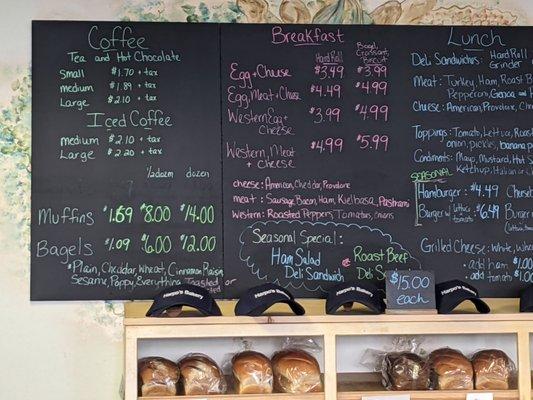 Coffee
Tea and Hot Chocolate
Small $1.70 + tax
medium $1.89 + tax
Large $2.10 + tax
Iced Coffee
medium $2.10 + tax
Large $2.20 + tax
½dozen dozen
Muffins $1.69 $8.00 $14.00
Bagels $1.09 $6.00 $12.00
*Plain, Cheddar, Wheat, Cinnamon Raisin
Sesame, Poppy, Everything Toasted or
Breakfast
Hard Roll
Bagel, Croissant, Biscuit
Egg + Cheese $3.49 $3.99
Egg, Meat + Cheese $4.49 $4.99
Western Egg + Cheese $3.99 $4.99
Western, Meat + Cheese $4.99 $5.99
cheese: American, Cheddar, Provolone
meat: Sausage, Bacon, Ham, Kielbasa, Pastrami
Western: Roasted Peppers, Tomatoes, Onions
Seasonal Special:
Ham Salad Deli Sandwich
Roast Beef Deli
$15.00
each
Lunch
Deli Sandwiches: Hard Roll
Grinder
Meat: Turkey, Ham, Roast
Pepperoni, Genoa
Cheese: American, Provolone
Toppings: Tomato, Lettuce,
onion, pickles, banana
Condiments: Mayo, Mustard,
Ketchup, Italian
SEASONAL
Hamburger: $4.49
Burger w/ lettuce tomato $6.49 Burger
Grilled Cheese: White,
add ham $1.00
add tomato $1.00